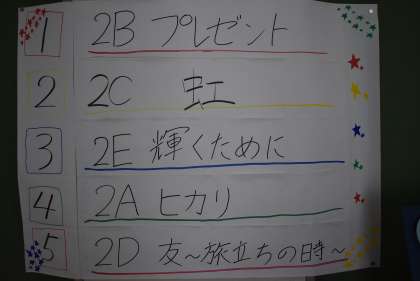 1 2B プレゼント
2 2C 虹
3 2E 輝くために
4 2A ヒカリ
5 2D 友~旅立ちの時~